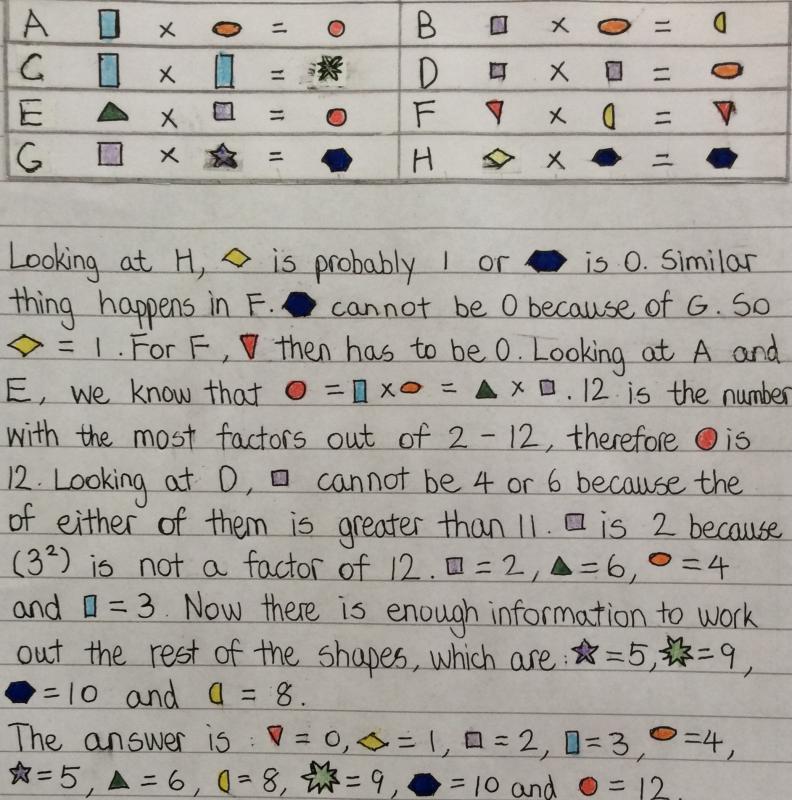 A × = B × =
C × = D × =
E × = F × =
G × = H × =
Looking at H, is probably 1 or is 0. Similar
thing happens in F. cannot be 0 because of G. So
= 1. For F, then has to be 0. Looking at A and
E, we know that = × = × . 12 is the number
with the most factors out of 2 - 12, therefore is
12. Looking at D, cannot be 4 or 6 because the
of either of them is greater than 11. is 2 because
(3²) is not a factor of 12. = 2, = 6, = 4
and = 3. Now there is enough information to work
out the rest of the shapes, which are: = 5, = 9,
= 10 and = 8.
The answer is : = 0, = 1, = 2, = 3, = 4,
= 5, = 6, = 8, = 9, = 10 and = 12.